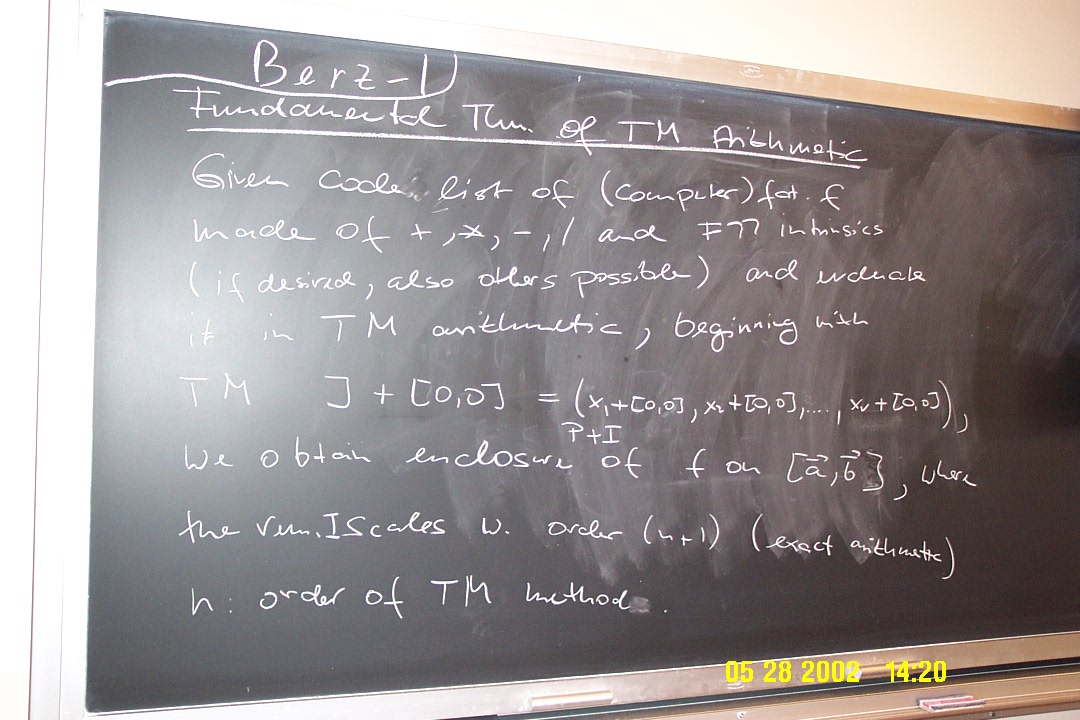 Berz-1
Fundamental Thm. of TM Arithmetic
Given code list of (computer) fct. f
made of +, *, -, / and F77 intrinsics
(if desired, also others possible) and evaluate
it in TM arithmetic, beginning with
TM J + [0,0] = (x₁+[0,0], x₂+[0,0],...., xᵥ+[0,0]),
P+I
We obtain enclosure of f on [a⃗,b⃗], where
the rem. I scales w. order (n+1) (exact arithmetic)
n: order of TM method.
05 28 2002 14:20